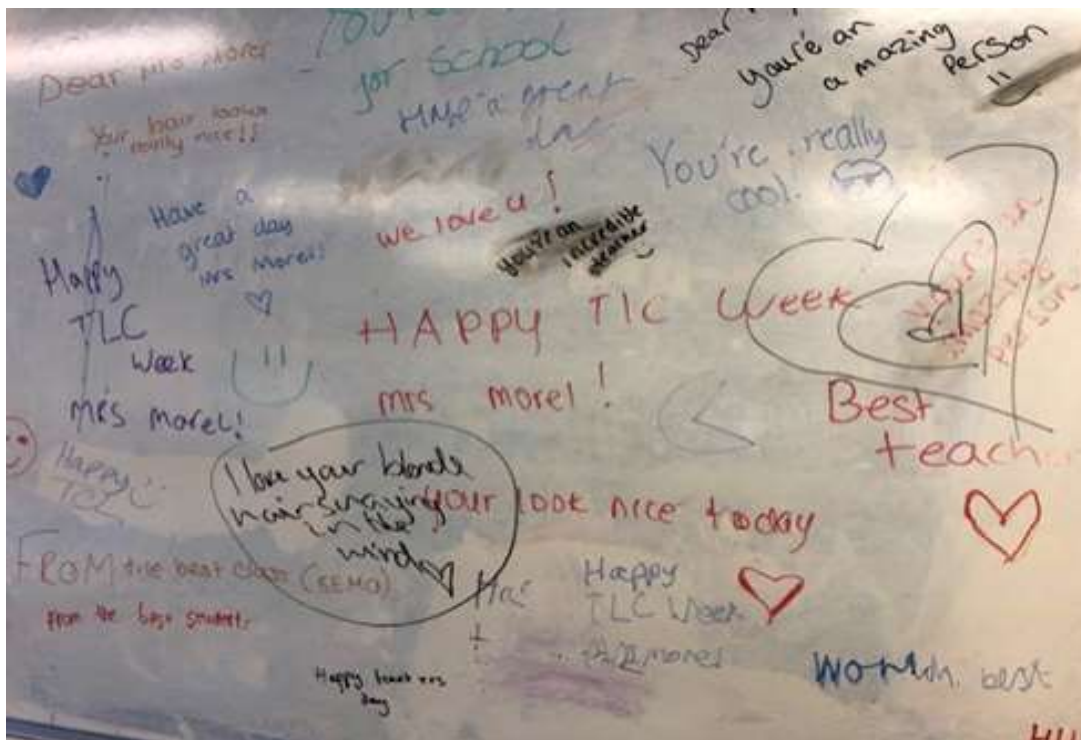 Dear Mrs Morel
Your hair looks
really nice!!
for School
Have a great
day
Dear
you're an
a mazing
Person
You're really
cool.
Have a
great day
Mrs Morel!
we love u!
you're an
incredible
Happy
TLC
Week
Mrs Morel!
HAPPY TLC Week
mrs morel!
person
Best
teach
Happy
I love your blonde
hair swaying
in the
wind
your look nice today
FROM the best class
from the best
Happy
TLC Week
Happy teachers
day
best